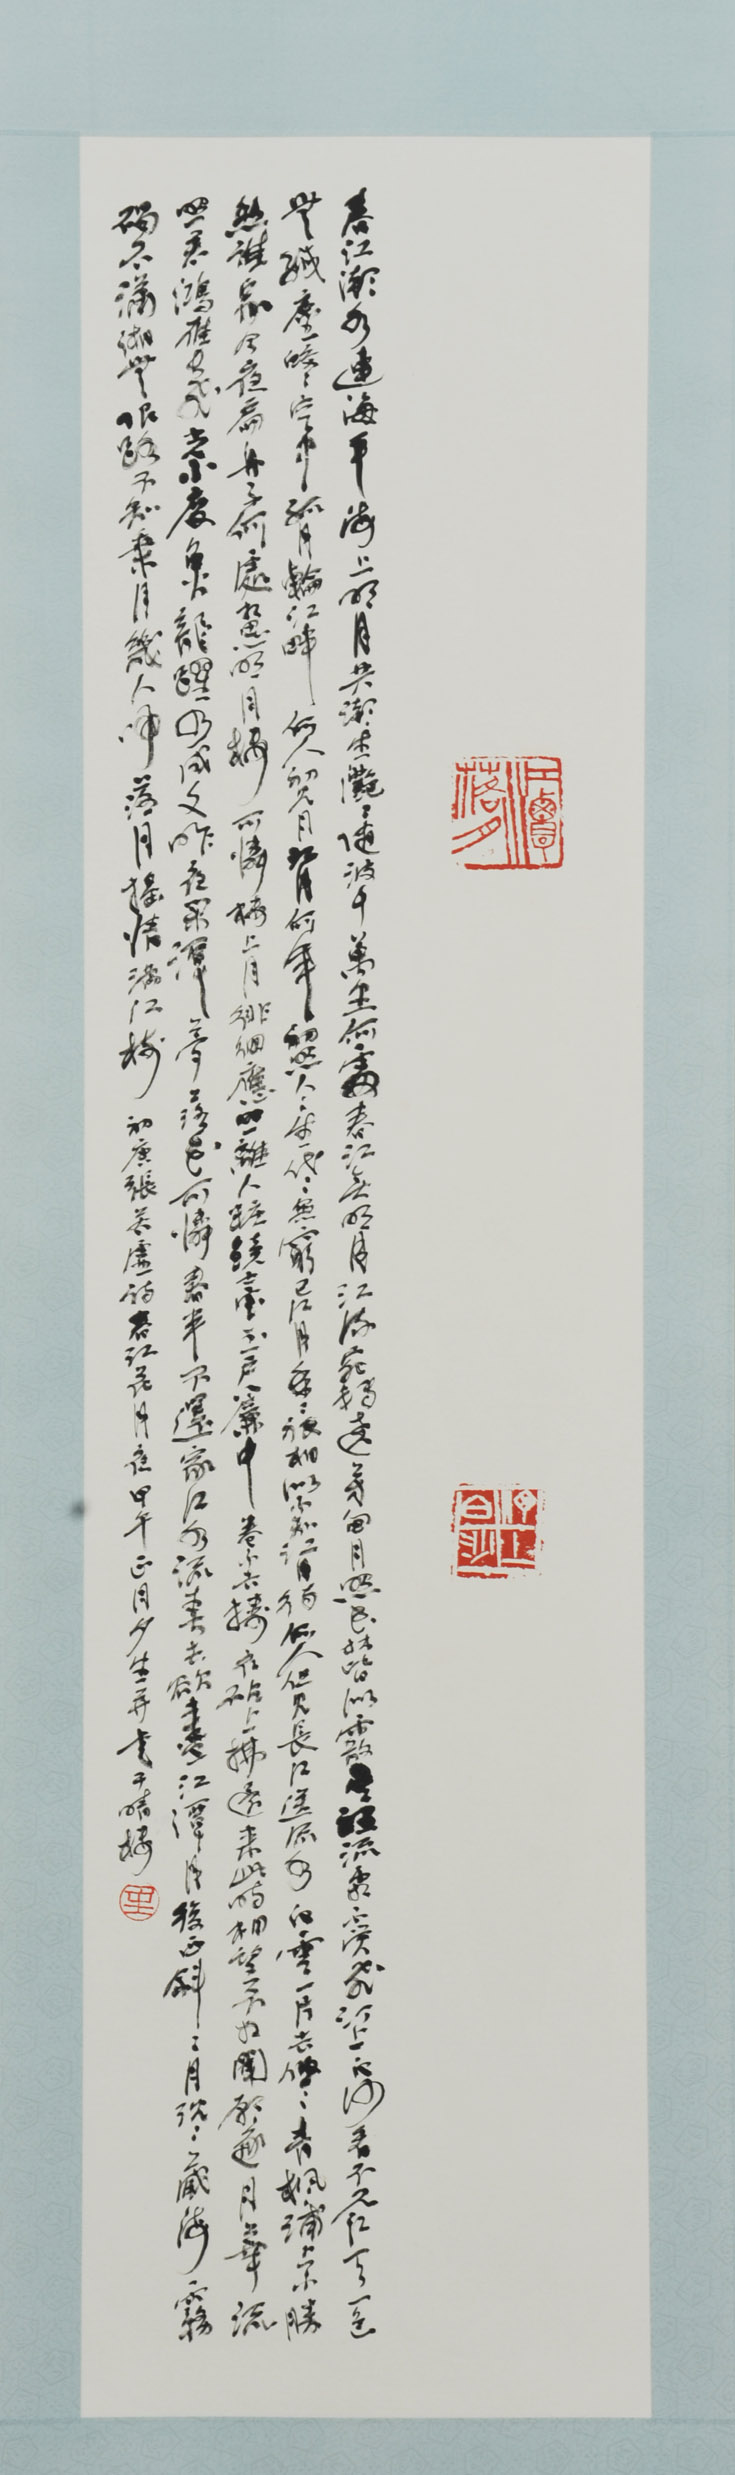 春江潮水連海平海上明月共潮生灩〻隨波千萬里何處春江無明月江流宛轉遶芳甸月照花林皆似霰空裏流霜覺飛汀上白沙看不見江天一色
無纖塵皎〻空中孤月輪江畔何人初見月江月何年初照人〻生代〻無窮已江月年〻祇相似不知江月待何人但見長江送流水白雲一片去悠〻青楓浦上不勝
愁誰家今夜扁舟子何處相思明月樓可憐樓上月徘徊應照離人粧鏡臺玉戶簾中卷不去擣衣砧上拂還來此時相望不相聞願逐月華流
照君鴻雁長飛光不度魚龍躍水成文昨夜閑潭夢落花可憐春半不還家江水流春去欲盡江潭月復西斜〻月沉〻藏海霧
碣石瀟湘無限路不知乘月幾人歸落月搖情滿江樹 初唐張若虛詩春江花月夜甲午正月
江潭落月
汀上白沙